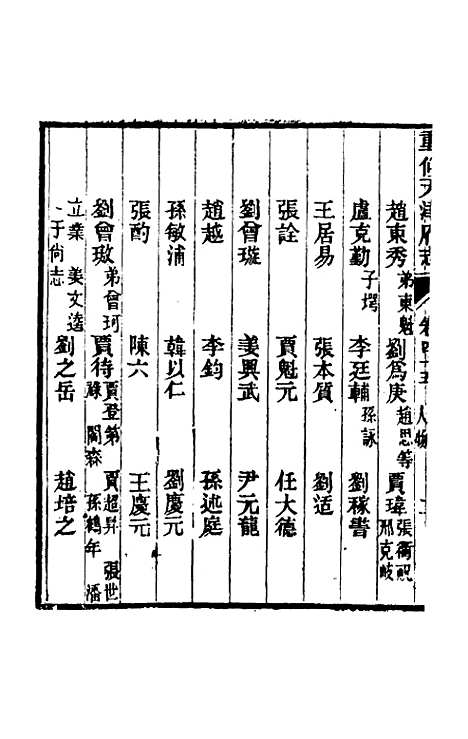 重修天津府志 卷四十五 人物
趙東秀 弟東魁 劉為庚 趙思等 賈瑋 張衝配 邢克岐
盧克勤 子堮 李廷輔 孫詠 劉稼書
王居易 張本質 劉适
張詮 賈魁元 任大德
劉曾璇 姜興武 尹元龍
趙越 李鈞 孫述庭
孫敏浦 韓以仁 劉慶元
張酌 陳六 王慶元
劉曾璈 弟曾珂 賈待 賈登第 祿 閻森 賈超昇 張世 孫鶴年 潘
立業 姜文逵 于尚志 劉之岳 趙培之